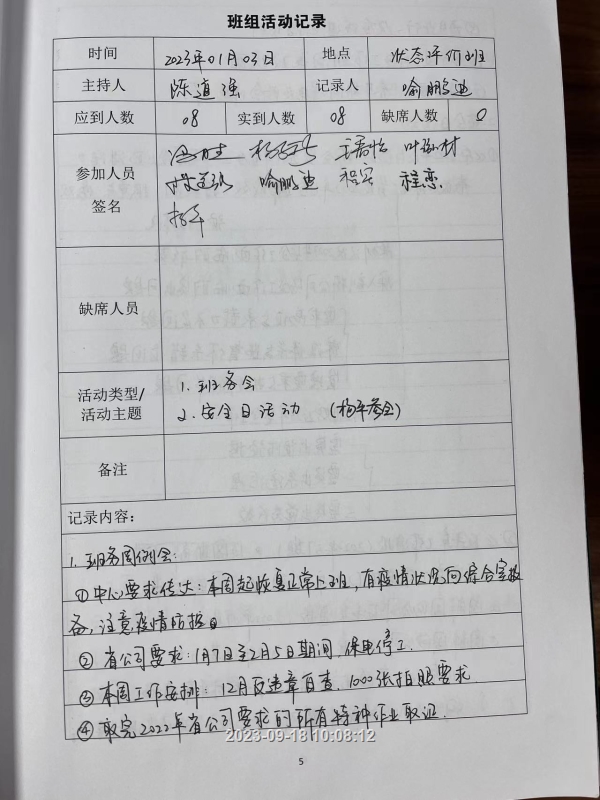 班组活动记录
时间 2023年01月03日 地点 状态评价班
主持人 陈道强 记录人 喻鹏迪
应到人数 08 实到人数 08 缺席人数 0
参加人员
签名
喻鹏迪 程实 程恋
杨平
缺席人员
活动类型/
活动主题
1. 班务会
2. 安全日活动 (杨平参会)
备注
记录内容:
1. 班务周例会:
①中心要求传达:本周起恢复正常上班,有疫情状况向综合室报
备,注意疫情防控。
② 省公司要求:1月7日至2月5日期间,保电停工.
③ 本周工作安排: 12月反违章自查, 1000张拍照要求.
④ 取完2022年省公司要求的所有特种作业取证.
2023-09-18 10:08:12
5